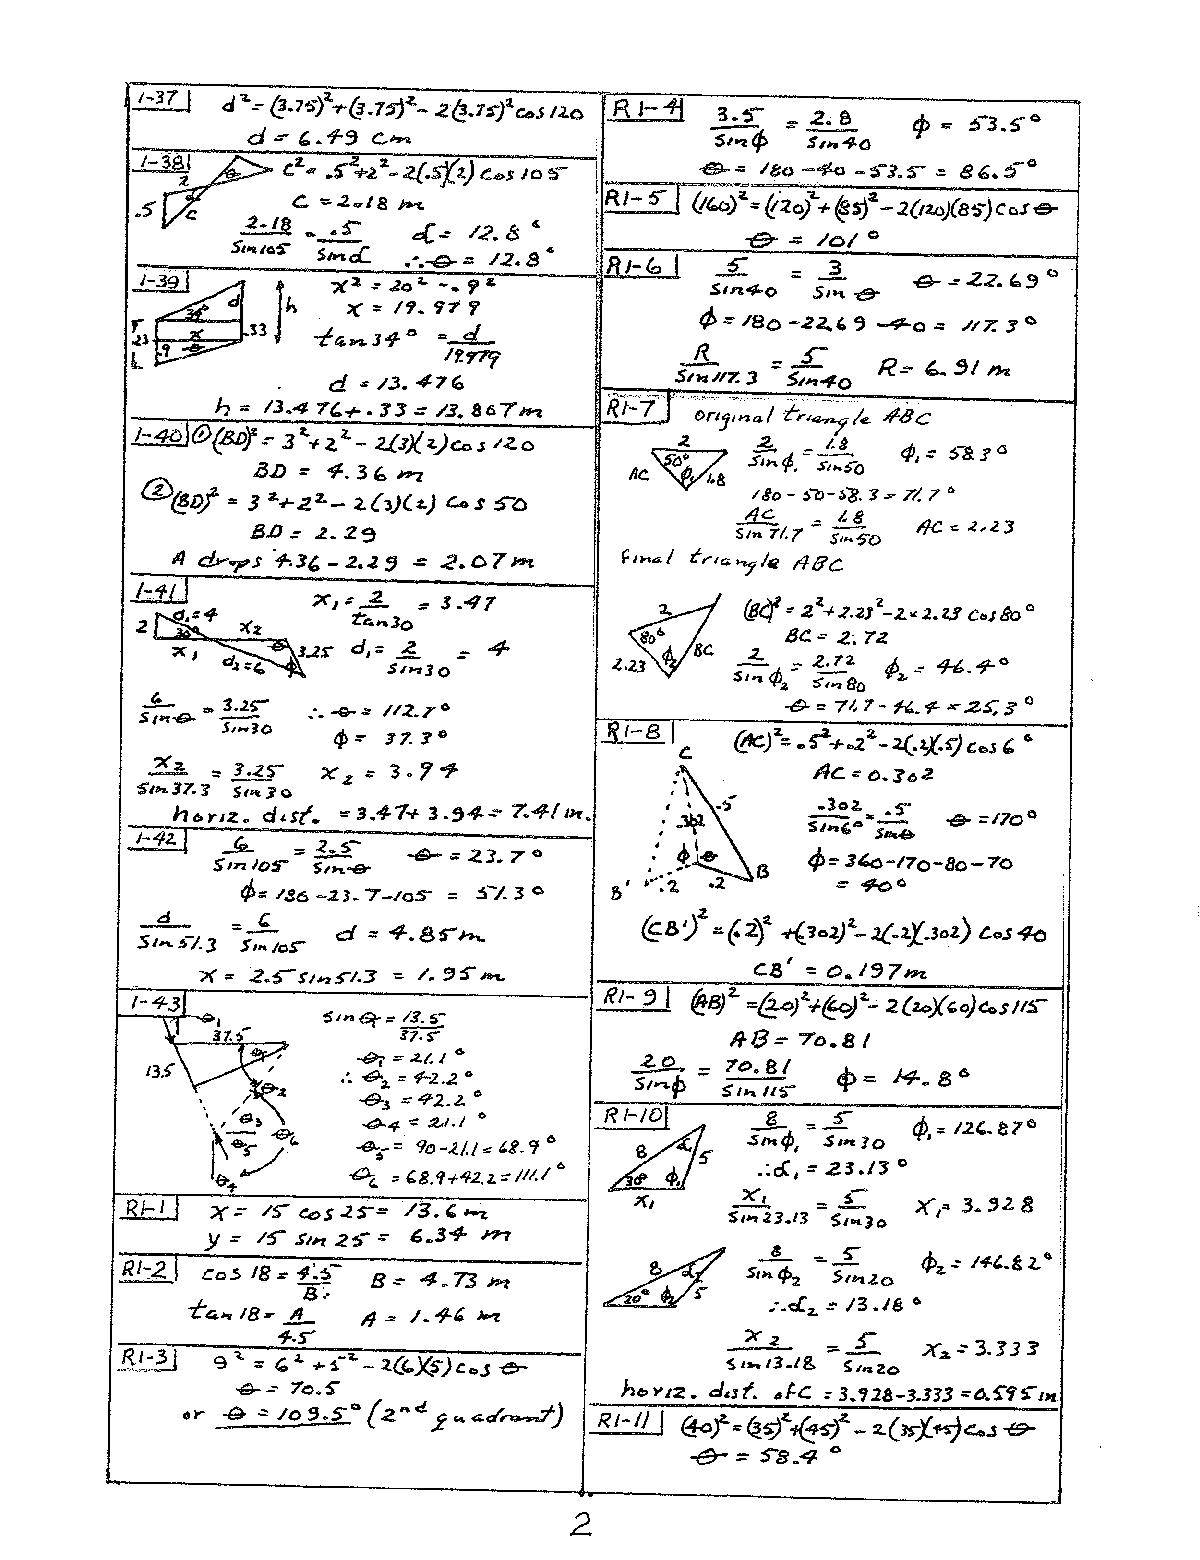 1-37
d² = (3.75)² + (3.75)² - 2(3.75)² cos 120
d = 6.49 cm
1-38
2
θ
.5
α
C
C² = .5² + 2² - 2(.5)(2) cos 105
C = 2.18 m
2.18/sin105 = .5/sin α   α = 12.8°
∴ θ = 12.8°
1-39
34°
d
h
x
.33
23
.9
θ
x² = 20² - .9²
x = 19.979
tan 34° = d/19.979
d = 13.476
h = 13.476 + .33 = 13.807 m
1-40
① (BD)² = 3² + 2² - 2(3)(2) cos 120
BD = 4.36 m
② (BD)² = 3² + 2² - 2(3)(2) cos 50
BD = 2.29
A drops 4.36 - 2.29 = 2.07 m
1-41
d₁ = 4
2
30°
x₂
x₁
θ
3.25
d₂ = 6
φ
x₁ = 2/tan30 = 3.47
d₁ = 2/sin30 = 4
6/sin θ = 3.25/sin30   ∴ θ = 112.7°
φ = 37.3°
x₂/sin37.3 = 3.25/sin30   x₂ = 3.94
horiz. dist. = 3.47 + 3.94 = 7.41 m.
1-42
6/sin105 = 2.5/sin θ   θ = 23.7°
φ = 180 - 23.7 - 105 = 51.3°
d/sin51.3 = 6/sin105   d = 4.85 m
x = 2.5 sin 51.3 = 1.95 m
1-43
θ₁
37.5
θ₁
13.5
θ₂
θ₃
θ₅
θ₆
θ₄
sin θ₁ = 13.5/37.5
θ₁ = 21.1°
∴ θ₂ = 42.2°
θ₃ = 42.2°
θ₄ = 21.1°
θ₅ = 90 - 21.1 = 68.9°
θ₆ = 68.9 + 42.2 = 111.1°
R1-1
x = 15 cos 25 = 13.6 m
y = 15 sin 25 = 6.34 m
R1-2
cos 18 = 4.5/B   B = 4.73 m
tan 18 = A/4.5   A = 1.46 m
R1-3
9² = 6² + 5² - 2(6)(5) cos θ
θ = 70.5
or θ = 109.5° (2nd quadrant)
R1-4
3.5/sin φ = 2.8/sin 40   φ = 53.5°
θ = 180 - 40 - 53.5 = 86.5°
R1-5
(160)² = (120)² + (85)² - 2(120)(85) cos θ
θ = 101°
R1-6
5/sin40 = 3/sin θ   θ = 22.69°
φ = 180 - 22.69 - 40 = 117.3°
R/sin117.3 = 5/sin40   R = 6.91 m
R1-7
original triangle ABC
2
50°
AC
φ₁
1.8
2/sin φ₁ = 1.8/sin50   φ₁ = 58.3°
180 - 50 - 58.3 = 71.7°
AC/sin 71.7 = 1.8/sin50   AC = 2.23
final triangle ABC
2
80°
2.23
φ₂
BC
(BC)² = 2² + 2.23² - 2 × 2.23 cos 80°
BC = 2.72
2/sin φ₂ = 2.72/sin 80   φ₂ = 46.4°
θ = 71.7 - 46.4 = 25.3°
R1-8
C
.5
.302
φ
θ
B
B'
.2
.2
(AC)² = .5² + .2² - 2(.2)(.5) cos 6°
AC = 0.302
.302/sin6° = .5/sin θ   θ = 170°
φ = 360 - 170 - 80 - 70
= 40°
(CB')² = (.2)² + (.302)² - 2(.2)(.302) cos 40
CB' = 0.197 m
R1-9
(AB)² = (20)² + (60)² - 2(20)(60) cos 115
AB = 70.81
20/sin φ = 70.81/sin 115   φ = 14.8°
R1-10
8
α₁
5
30°
φ₁
x₁
8/sin φ₁ = 5/sin 30   φ₁ = 126.87°
∴ α₁ = 23.13°
x₁/sin 23.13 = 5/sin30   x₁ = 3.928
8
α₂
5
20°
φ₂
8/sin φ₂ = 5/sin20   φ₂ = 146.82°
∴ α₂ = 13.18°
x₂/sin 13.18 = 5/sin20   x₂ = 3.333
horiz. dist. of C = 3.928 - 3.333 = 0.595 m
R1-11
(40)² = (35)² + (45)² - 2(35)(45) cos θ
θ = 58.4°
2